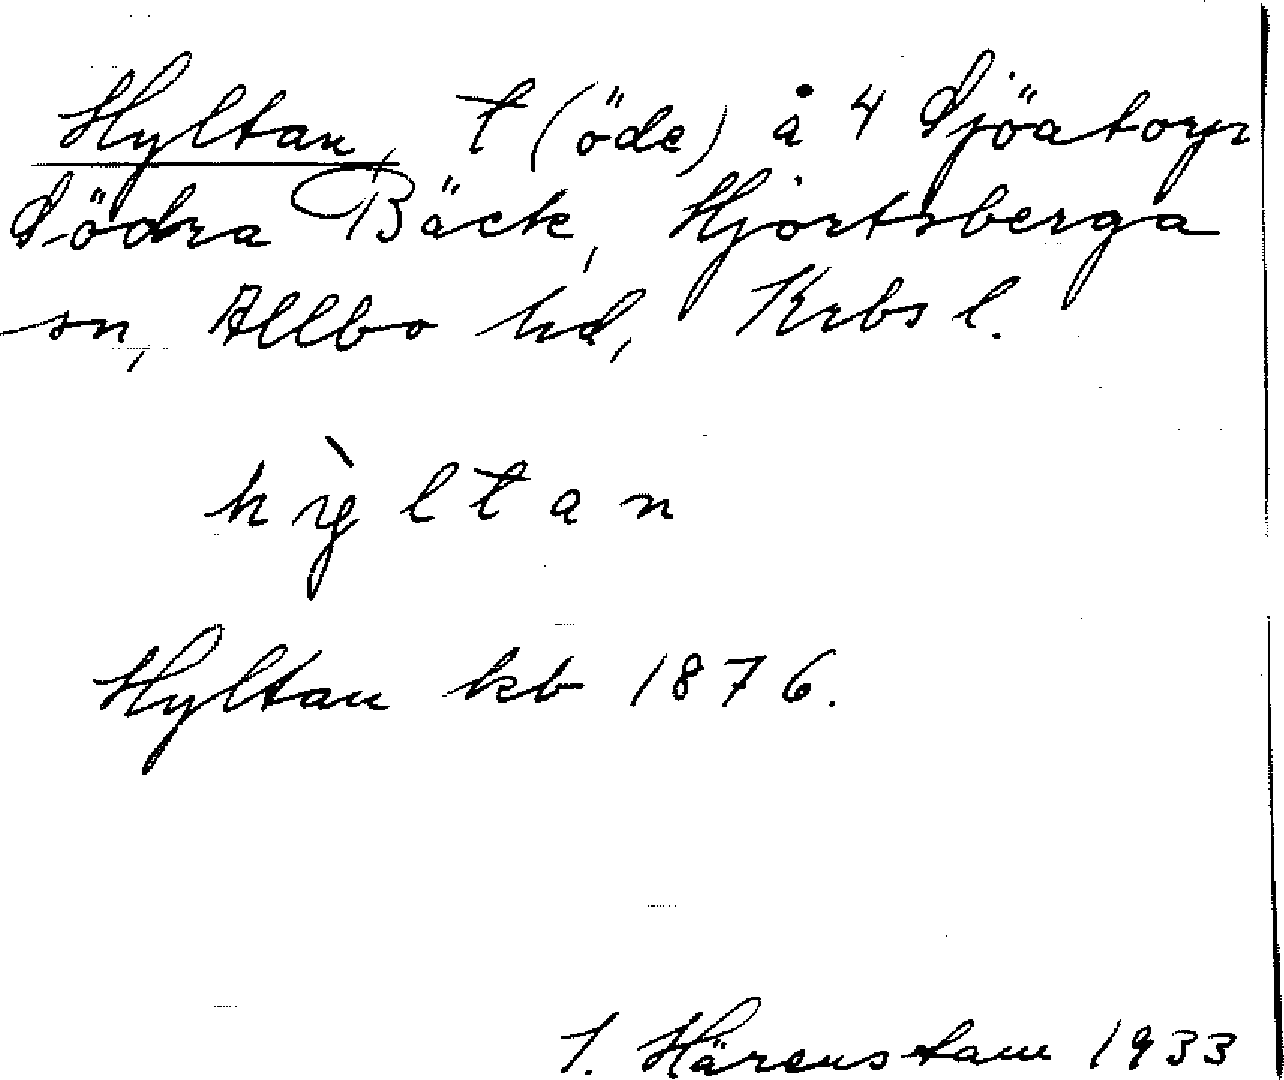 Hyltan, t (öde) å 4 Sjöatorp
Södra Bäck, Hjortsberga
sn, Allbo hd, Krbs l.
hỳltan
Hyltan kb 1876.
I. Härenstam 1933